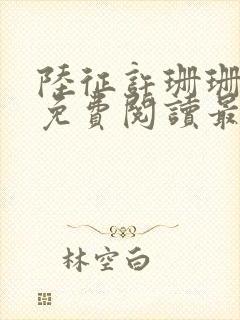 陸征許珊珊
免費閱讀最
林空白